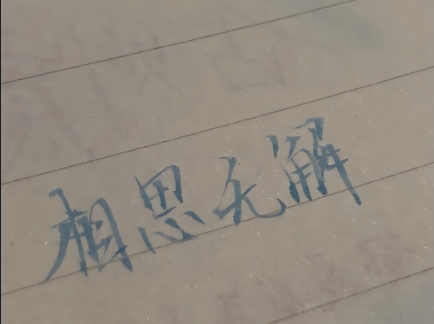 相思无解